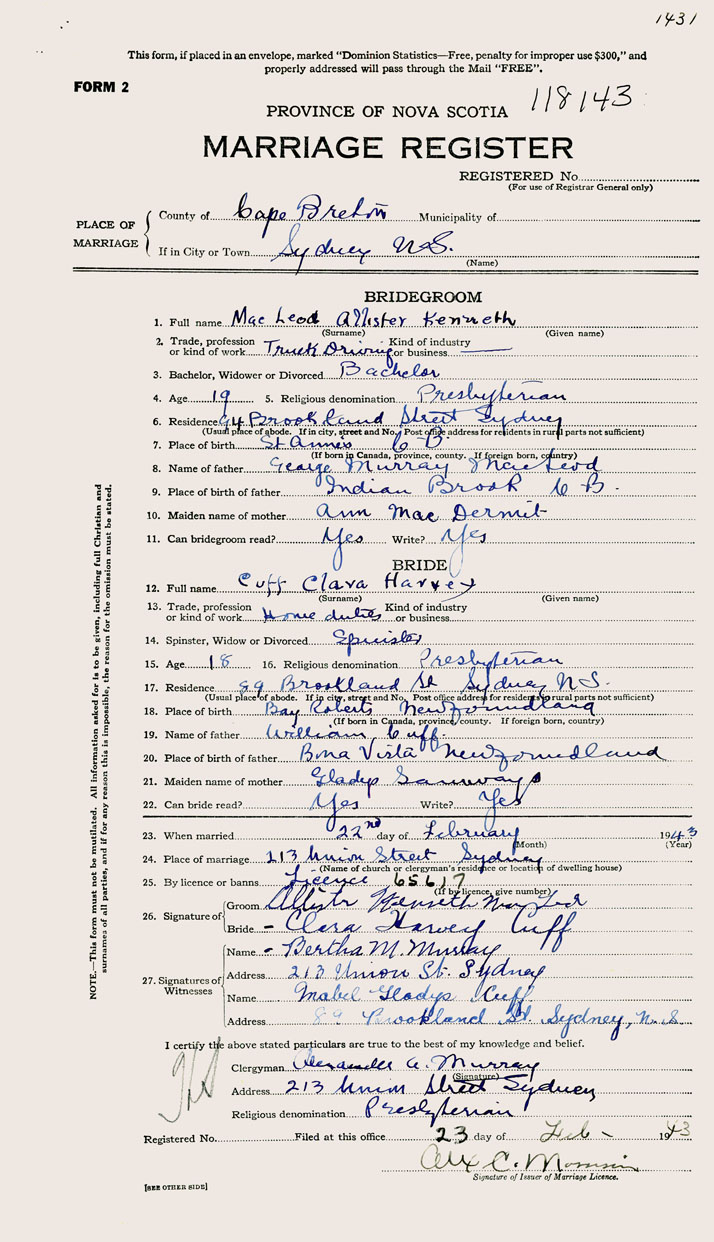 1431
This form, if placed in an envelope, marked "Dominion Statistics—Free, penalty for improper use $300," and
properly addressed will pass through the Mail "FREE".
FORM 2
118143
PROVINCE OF NOVA SCOTIA
MARRIAGE REGISTER
REGISTERED No.
(For use of Registrar General only)
PLACE OF MARRIAGE
County of Cape Breton Municipality of
If in City or Town Sydney N.S.
(Name)
BRIDEGROOM
1. Full name Mac Leod Allister Kenneth
(Surname) (Given name)
2. Trade, profession or kind of work Truck Driving Kind of industry or business
3. Bachelor, Widower or Divorced Bachelor
4. Age 19 5. Religious denomination Presbyterian
6. Residence 94 Brookland Street Sydney
(Usual place of abode. If in city, street and No. Post office address for residents in rural parts not sufficient)
7. Place of birth St Anns C B.
(If born in Canada, province, county. If foreign born, country)
8. Name of father George Murray MacLeod
9. Place of birth of father Indian Brook C B.
10. Maiden name of mother Ann Mac Dermit
11. Can bridegroom read? Yes Write? Yes
BRIDE
12. Full name Cuff Clara Harvey
(Surname) (Given name)
13. Trade, profession or kind of work Home duties Kind of industry or business
14. Spinster, Widow or Divorced Spinster
15. Age 18 16. Religious denomination Presbyterian
17. Residence 89 Brookland St Sydney N.S.
(Usual place of abode. If in city, street and No. Post office address for residents in rural parts not sufficient)
18. Place of birth Bay Roberts Newfoundland
(If born in Canada, province, county. If foreign born, country)
19. Name of father William Cuff
20. Place of birth of father Bona Vista Newfoundland
21. Maiden name of mother Gladys
22. Can bride read? Yes Write? Yes
23. When married 22nd day of February 1943
(Month) (Year)
24. Place of marriage 213 Union Street Sydney
(Name of church or clergyman's residence or location of dwelling house)
25. By licence or banns Licence 65617
(If by licence, give number)
26. Signature of
Groom Allister Kenneth MacLeod
Bride - Clara Harvey Cuff
27. Signatures of Witnesses
Name - Bertha M. Murray
Address 213 Union St. Sydney
Name Mabel Gladys Cuff
Address 89 Brookland St. Sydney, N.S.
I certify the above stated particulars are true to the best of my knowledge and belief.
Clergyman Alexander A. Murray
(Signature)
Address 213 Union Street Sydney
Religious denomination Presbyterian
Registered No. Filed at this office 23 day of Feb - 1943
Alex C.
Signature of Issuer of Marriage Licence.
[SEE OTHER SIDE]
NOTE.—This form must not be mutilated. All information asked for is to be given, including full Christian and
surnames of all parties, and if for any reason this is impossible, the reason for the omission must be stated.